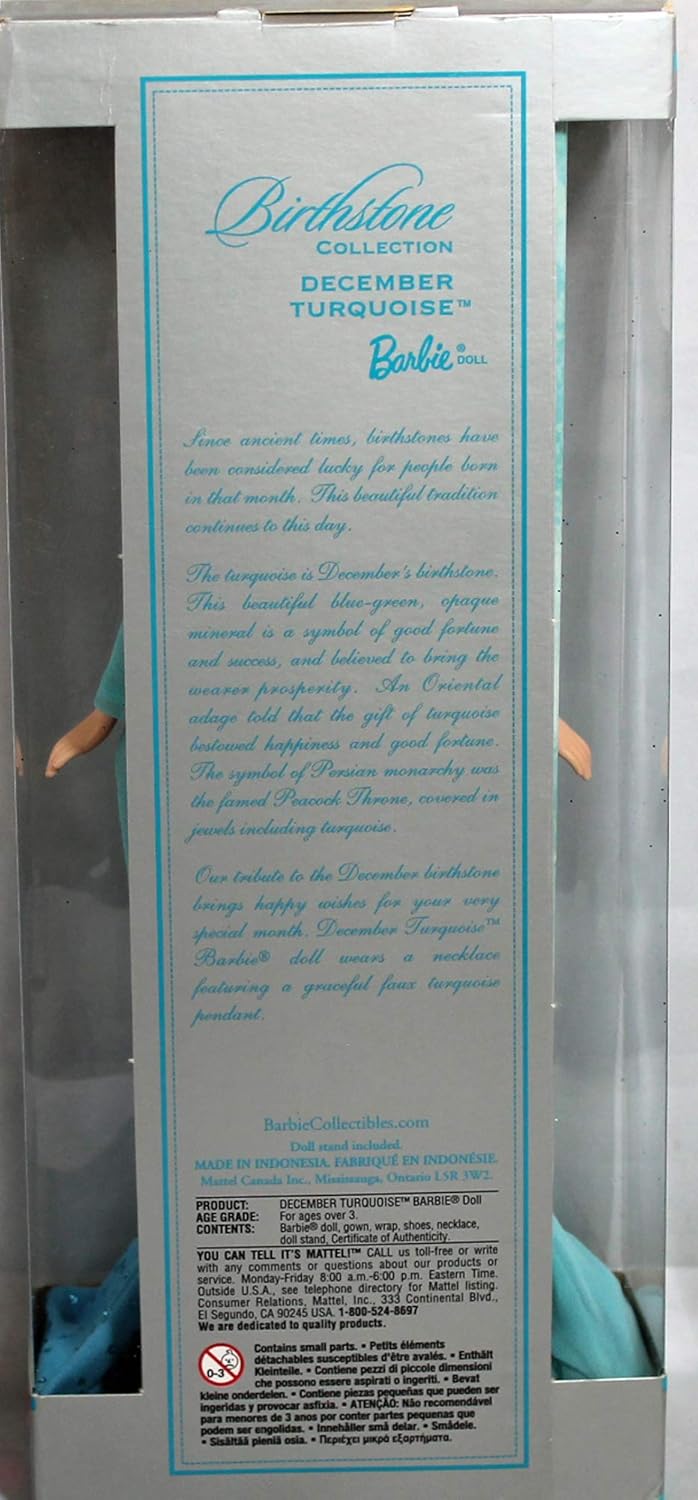 Birthstone
COLLECTION
DECEMBER
TURQUOISE™
Barbie® DOLL
Since ancient times, birthstones have
been considered lucky for people born
in that month. This beautiful tradition
continues to this day.
The turquoise is December's birthstone.
This beautiful blue-green, opaque
mineral is a symbol of good fortune
and success, and believed to bring the
wearer prosperity. An Oriental
adage told that the gift of turquoise
bestowed happiness and good fortune.
The symbol of Persian monarchy was
the famed Peacock Throne, covered in
jewels including turquoise.
Our tribute to the December birthstone
brings happy wishes for your very
special month. December Turquoise™
Barbie® doll wears a necklace
featuring a graceful faux turquoise
pendant.
BarbieCollectibles.com
Doll stand included.
MADE IN INDONESIA. FABRIQUÉ EN INDONÉSIE.
Mattel Canada Inc., Mississauga, Ontario L5R 3W2.
PRODUCT: DECEMBER TURQUOISE™ BARBIE® Doll
AGE GRADE: For ages over 3.
CONTENTS: Barbie® doll, gown, wrap, shoes, necklace,
doll stand, Certificate of Authenticity.
YOU CAN TELL IT'S MATTEL!™ CALL us toll-free or write
with any comments or questions about our products or
service. Monday-Friday 8:00 a.m.-6:00 p.m. Eastern Time.
Outside U.S.A., see telephone directory for Mattel listing.
Consumer Relations, Mattel, Inc., 333 Continental Blvd.,
El Segundo, CA 90245 USA. 1-800-524-8697
We are dedicated to quality products.
0-3
Contains small parts. • Petits éléments
détachables susceptibles d'être avalés. • Enthält
Kleinteile. • Contiene pezzi di piccole dimensioni
che possono essere aspirati o ingeriti. • Bevat
kleine onderdelen. • Contiene piezas pequeñas que pueden ser
ingeridas y provocar asfixia. • ATENÇÃO: Não recomendável
para menores de 3 anos por conter partes pequenas que
podem ser engolidas. • Innehåller små delar. • Smådele.
• Sisältää pieniä osia. • Περιέχει μικρά εξαρτήματα.